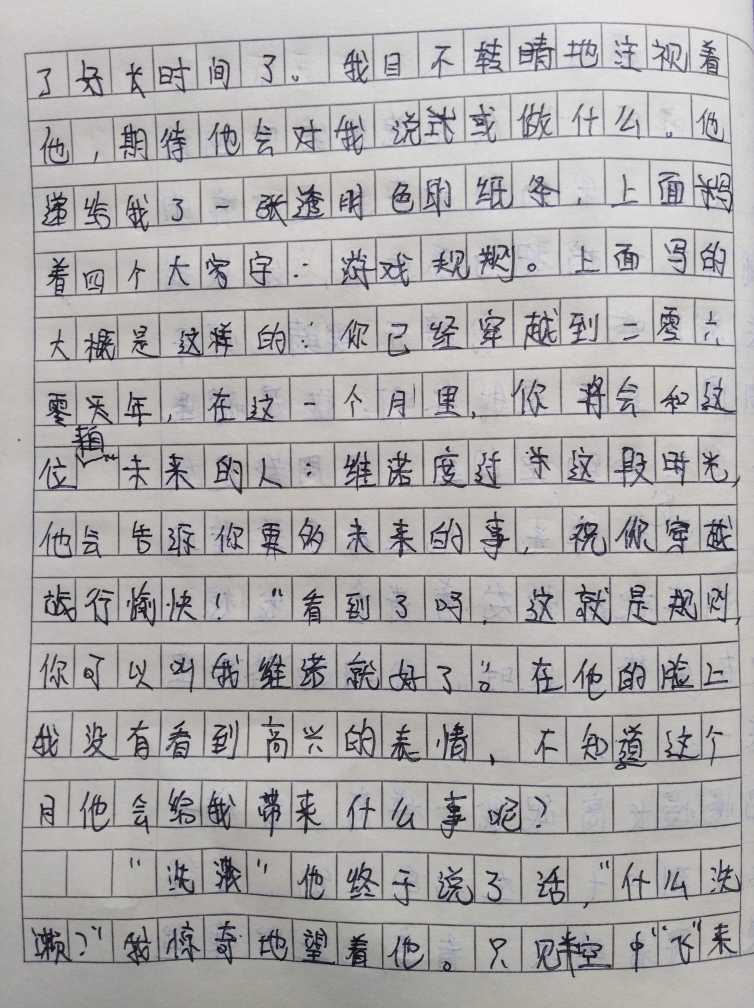 了好长时间了。我目不转睛地注视着
他，期待他会对我说式或做什么。他
递给我了一张透明色的纸条，上面写
着四个大字：游戏规则。上面写的
大概是这样的：你已经穿越到二零六
零年，在这一个月里，你将会和这
位来自未来的人：维诺度过这段时光，
他会告诉你要的未来的事，祝你穿越
旅行愉快！“看到了吗，这就是规则，
你可以叫我维诺就好了”。在他的脸上
我没有看到高兴的表情，不知道这个
月他会给我带来什么事呢？
“洗漱”他终于说了话，“什么洗
漱？”我惊奇地望着他。只见半空中“飞”来